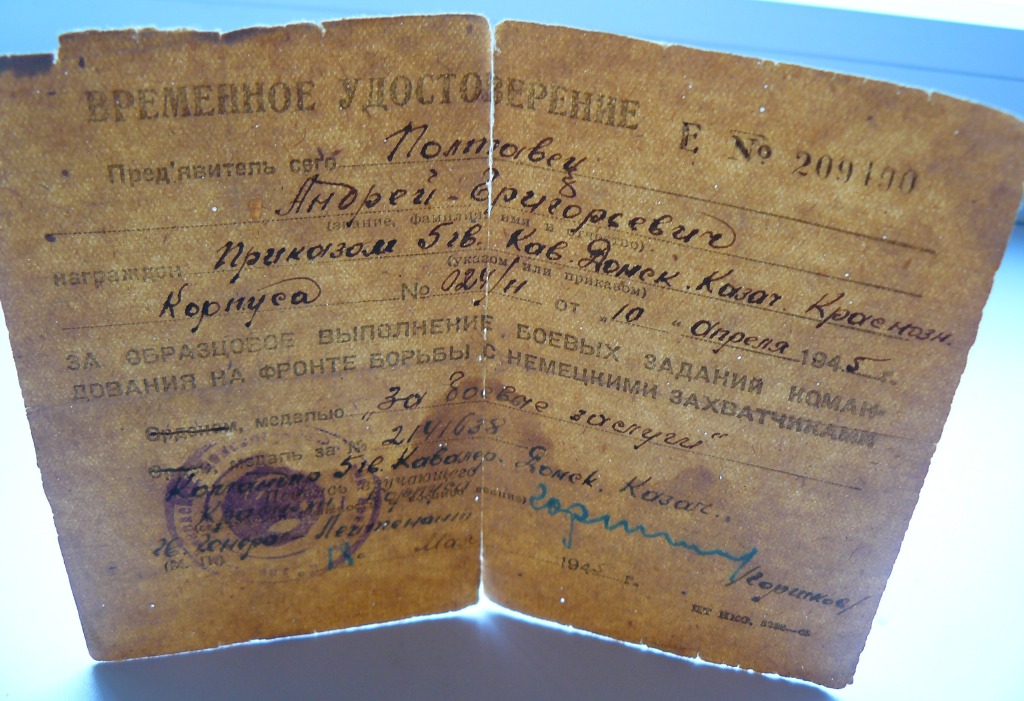 ВРЕМЕННОЕ УДОСТОВЕРЕНИЕ
Е № 209190
Пред'явитель сего Полтавец
Андрей Григорьевич
(звание, фамилия, имя и отчество)
награжден Приказом 5гв. Кав. Донск. Казач. Краснозн.
(указом или приказом)
Корпуса № 024/н от „10" апреля 1945 г.
ЗА ОБРАЗЦОВОЕ ВЫПОЛНЕНИЕ БОЕВЫХ ЗАДАНИЙ КОМАН-
ДОВАНИЯ НА ФРОНТЕ БОРЬБЫ С НЕМЕЦКИМИ ЗАХВАТЧИКАМИ
Орденом, медалью „За боевые заслуги"
медаль за № 2141638
5гв. Кавалер. Донск. Казач.
гв. Генерал Лейтенант /Горшков/
(М. П.) 18 Мая 1945 г.
ЦТ НКО.